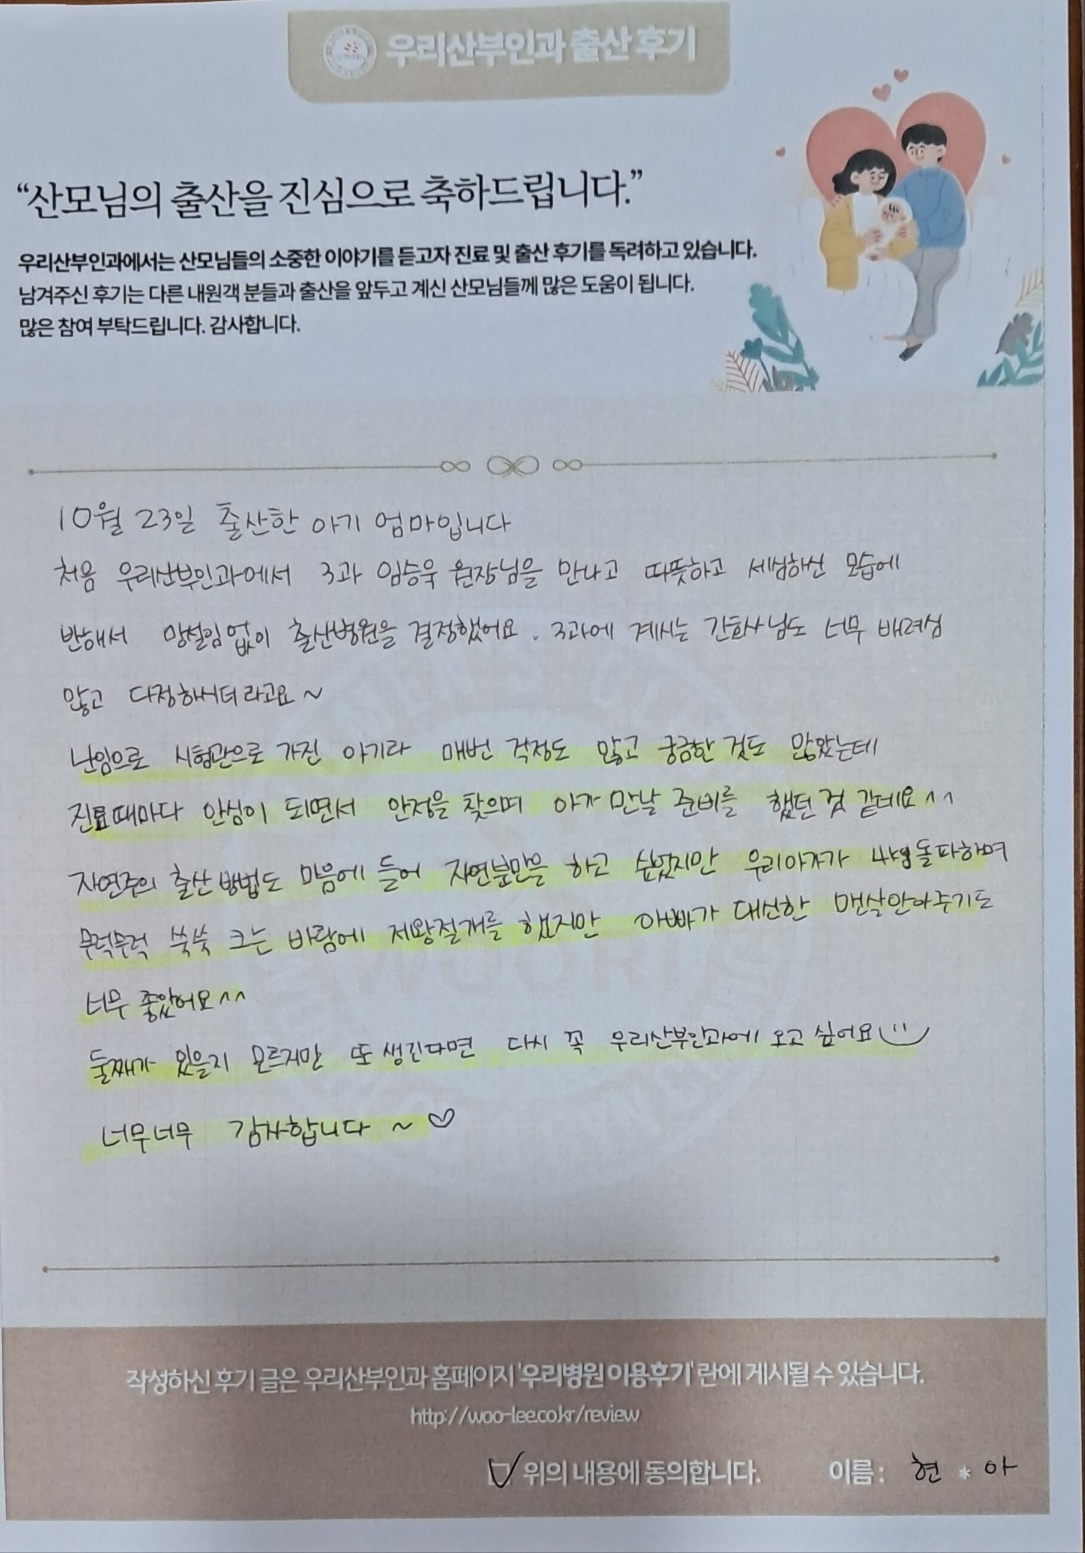 우리산부인과 출산 후기
“산모님의 출산을 진심으로 축하드립니다.”
우리산부인과에서는 산모님들의 소중한 이야기를 듣고자 진료 및 출산 후기를 독려하고 있습니다.
남겨주신 후기는 다른 내원객 분들과 출산을 앞두고 계신 산모님들께 많은 도움이 됩니다.
많은 참여 부탁드립니다. 감사합니다.
10월 23일 출산한 아기 엄마입니다
처음 우리산부인과에서 3과 임승욱 원장님을 만나고 따뜻하고 세심하신 모습에
반해서 망설임없이 출산병원을 결정했어요. 3과에 계시는 간호사님도 너무 배려심
많고 다정하시더라고요~
난임으로 시험관으로 가진 아기라 매번 걱정도 많고 궁금한 것도 많았는데
진료때마다 안심이 되면서 안정을 찾으며 아가 만날 준비를 했던 것 같네요^^
자연주의 출산 방법도 마음에 들어 자연분만을 하고 싶었지만 우리아가가 4kg돌파하며
무럭무럭 쑥쑥 크는 바람에 제왕절개를 했지만 아빠가 대신한 맨살안아주기도
너무 좋았어요^^
둘째가 있을지 모르지만 또 생긴다면 다시 꼭 우리산부인과에 오고 싶어요
너무너무 감사합니다 ~ ♡
WOORI
작성하신 후기 글은 우리산부인과 홈페이지 '우리병원 이용후기' 란에 게시될 수 있습니다.
http://woo-lee.co.kr/review
☑ 위의 내용에 동의합니다. 이름 : 현 * 아